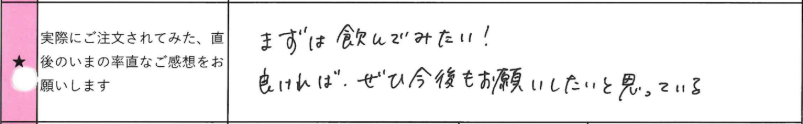 ★
実際にご注文されてみた、直
後のいまの率直なご感想をお
願いします
まずは飲んでみたい！
良ければ、ぜひ今後もお願いしたいと思っている